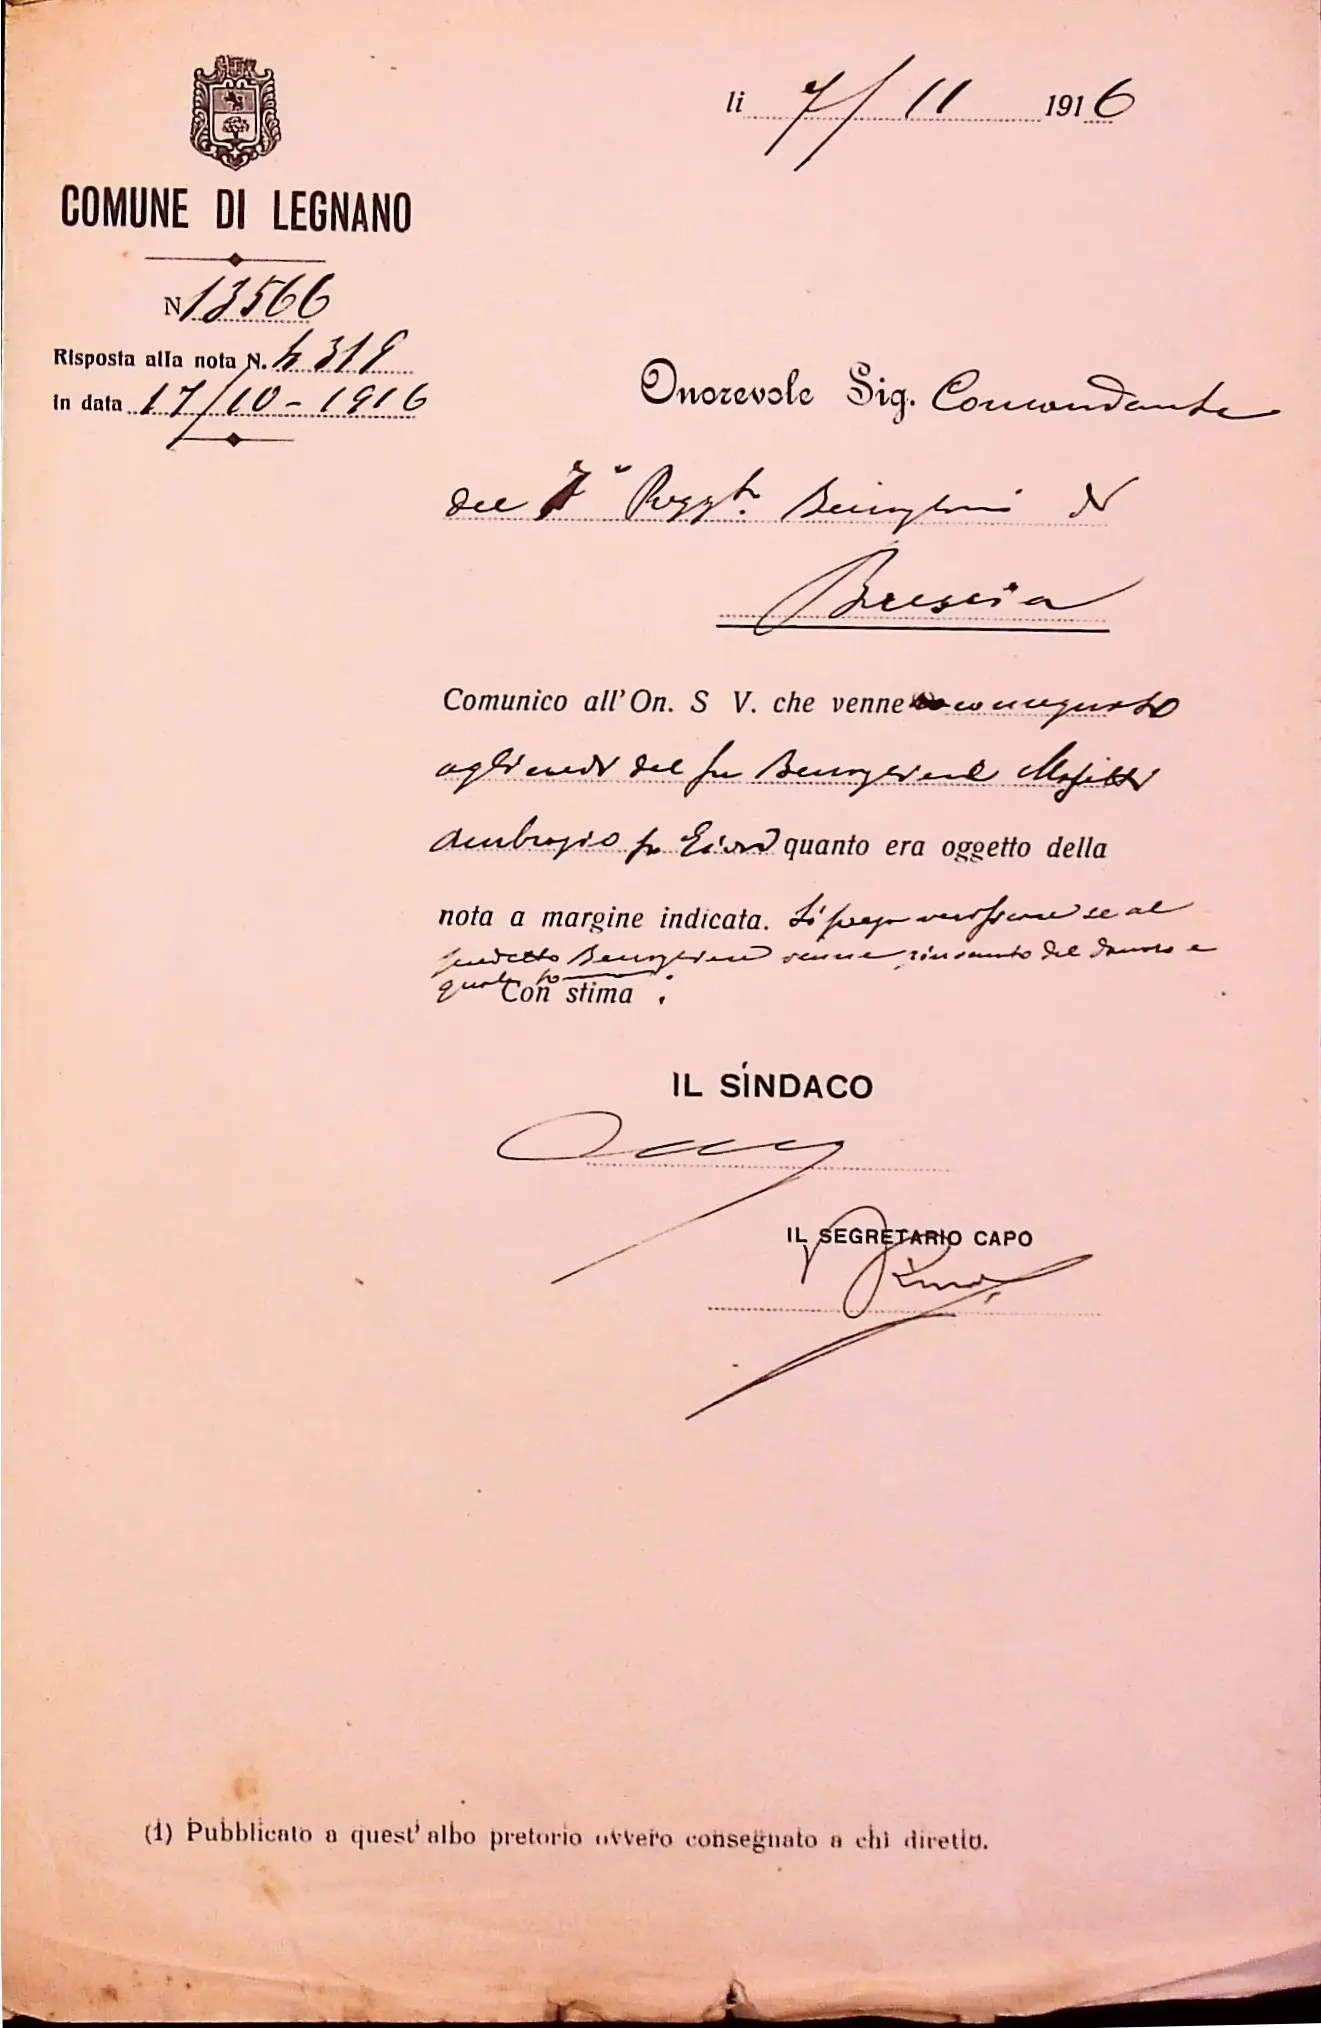 li 7/11 1916
COMUNE DI LEGNANO
N 13566
Risposta alla nota N. 4319
in data 17/10-1916
Onorevole Sig. Comandante
del 7° Reggto. Bersaglieri
Brescia
Comunico all'On. S V. che venne consegnato
agli eredi del fu Bersagliere
Ambrogio fu quanto era oggetto della
nota a margine indicata. Si prega verificare se al
predetto Bersagliere venne rinvenuto del danaro e
quanto.
Con stima
IL SINDACO
IL SEGRETARIO CAPO
(1) Pubblicato a quest'albo pretorio ovvero consegnato a chi diretto.